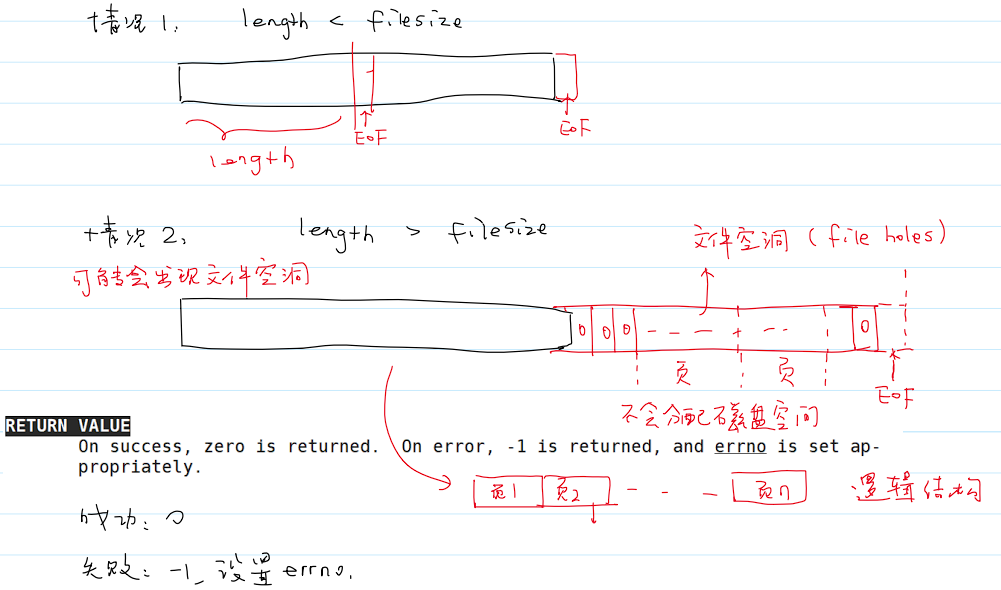 情况1. length < filesize
EOF
EOF
length
情况2. length > filesize
文件空洞 (file holes)
可能会出现文件空洞
0 0 0 - - - - - 0
页 页
EOF
不会分配磁盘空间
RETURN VALUE
On success, zero is returned. On error, -1 is returned, and errno is set ap-
propriately.
页1 页2 - - - 页n 逻辑结构
成功: 0
失败: -1, 设置errno.